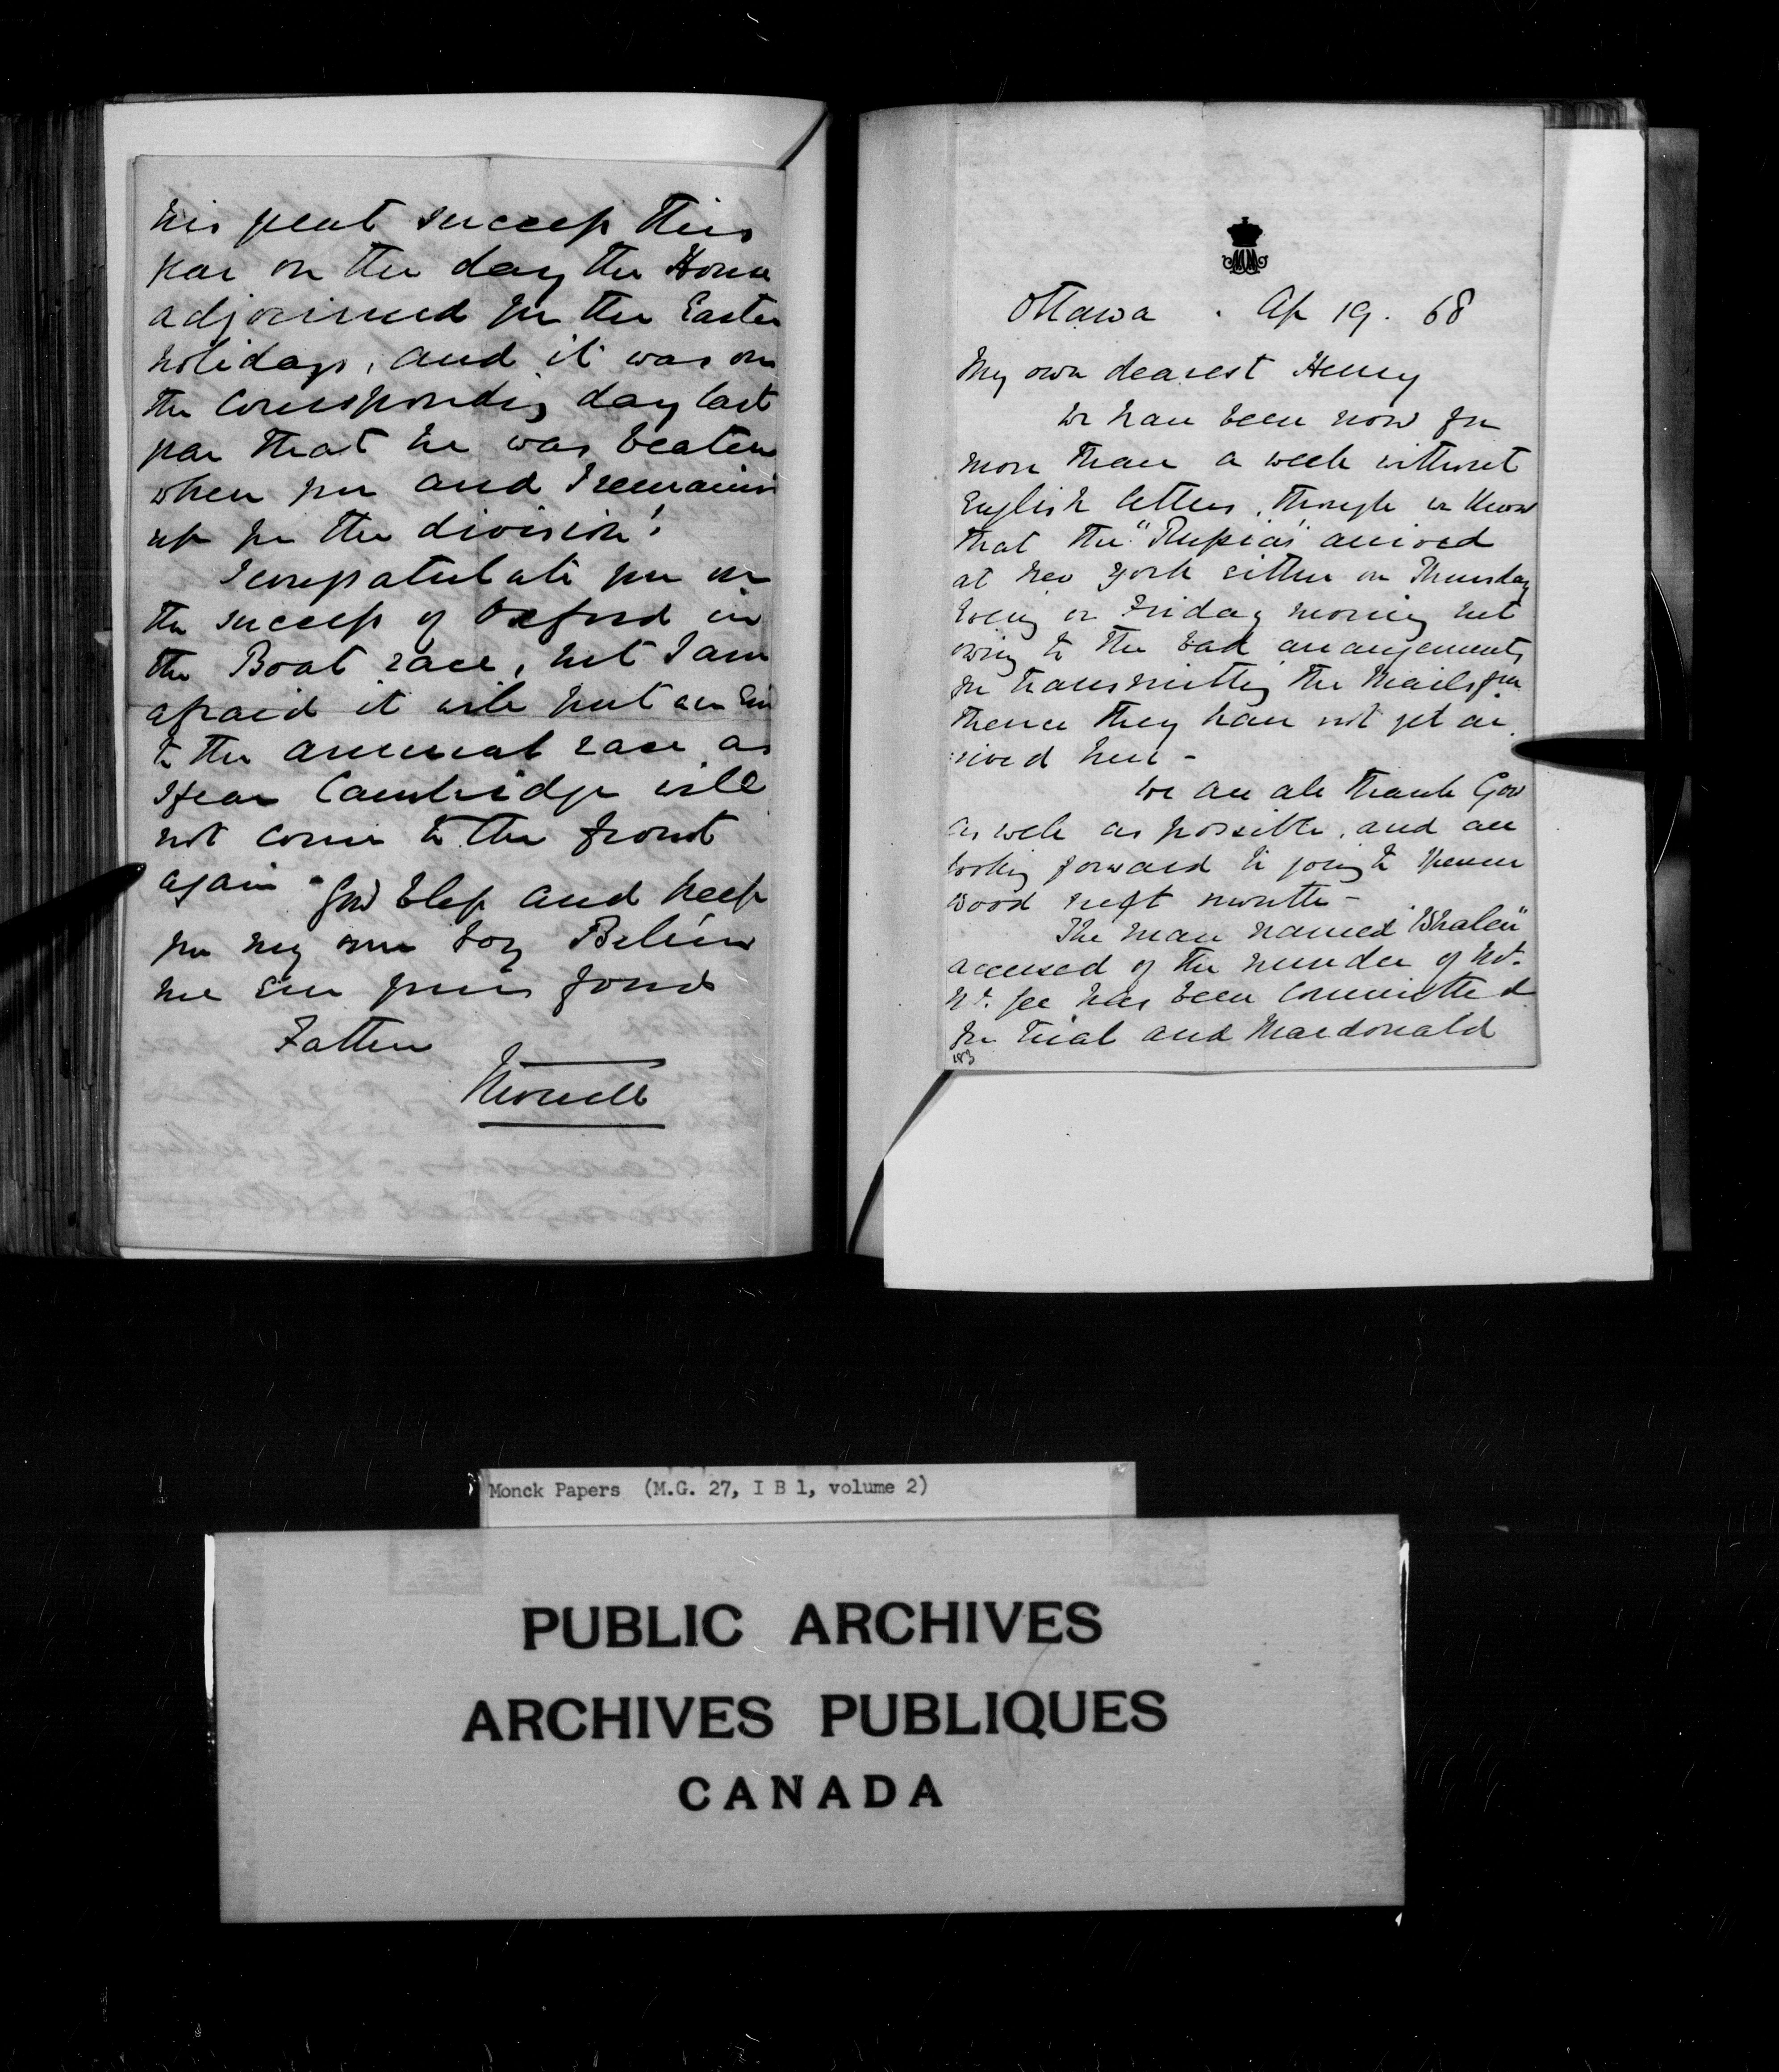 his great success this
year on the day the House
adjourned for the Easter
holidays, and it was on
the corresponding day last
year that he was beaten
when you and I remained
up for the division!
I congratulate you on
the success of Oxford in
the Boat race, but I am
afraid it will put an End
to the annual race as
I fear Cambridge will
not come to the front
again - God bless and keep
you my own boy Believe
me Ever your fond
Father
Monck
Ottawa . Ap 19. 68
My own dearest Henry
We have been now for
more than a week without
English letters, though we know
that the "Russia" arrived
at New York either on Thursday
Eveng or Friday morning but
owing to the bad arrangements
for transmitting the Mails from
thence they have not yet ar
rived here -
We are all thank God
as well as possible, and are
looking forward to going to Spencer
Wood next month -
The man named "Whalen"
accused of the murder of Mr.
McGee has been committed
for trial and Macdonald
183
Monck Papers (M.G. 27, I B 1, volume 2)
PUBLIC ARCHIVES
ARCHIVES PUBLIQUES
CANADA